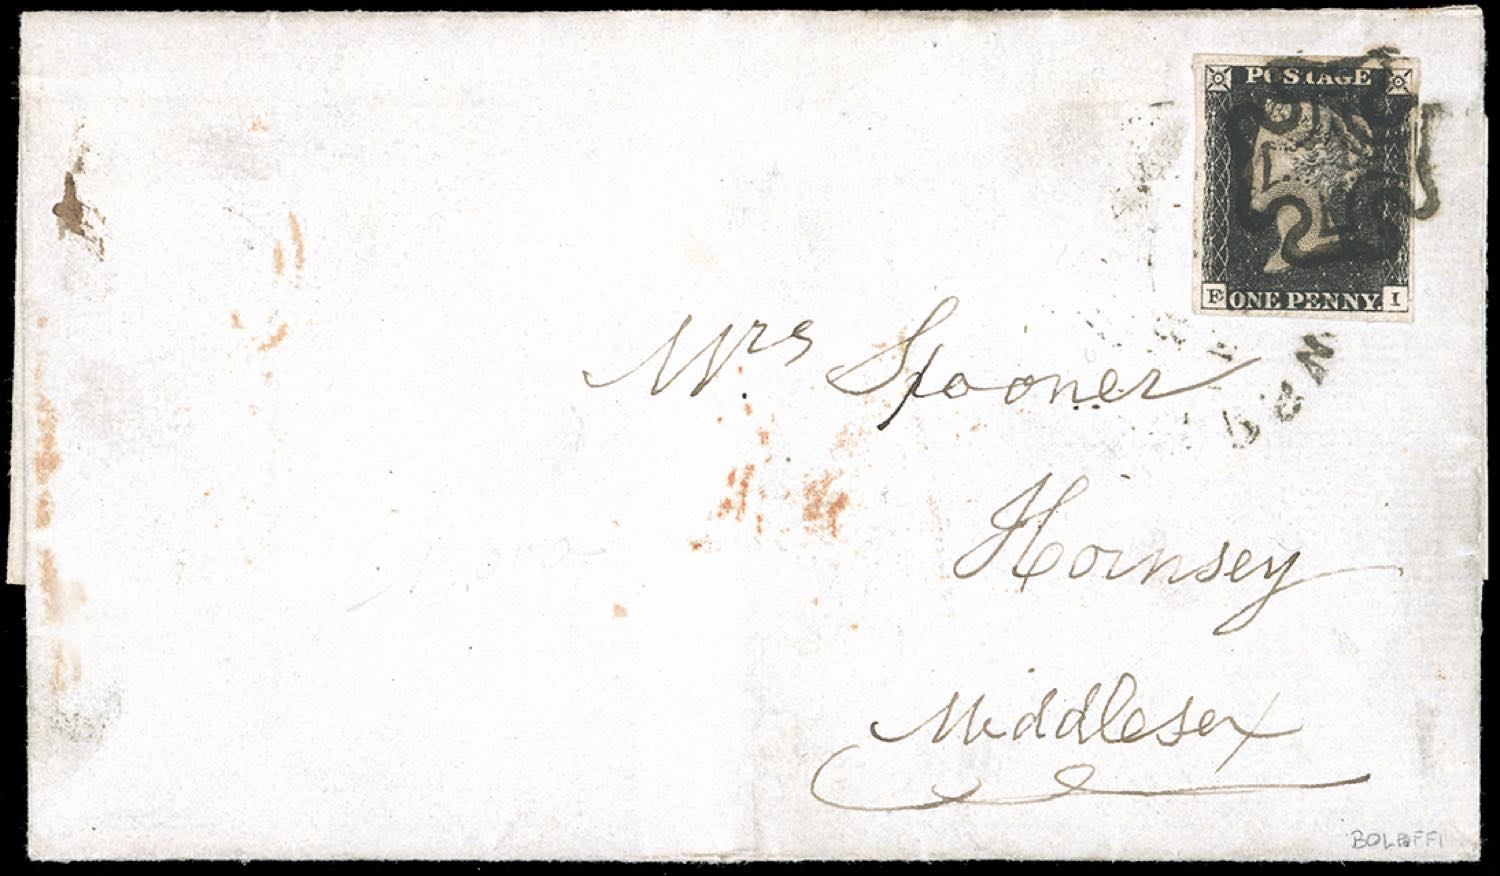 POSTAGE
F ONE PENNY. I
Mrs Spooner
Hornsey
Middlesex
BOLAFFI